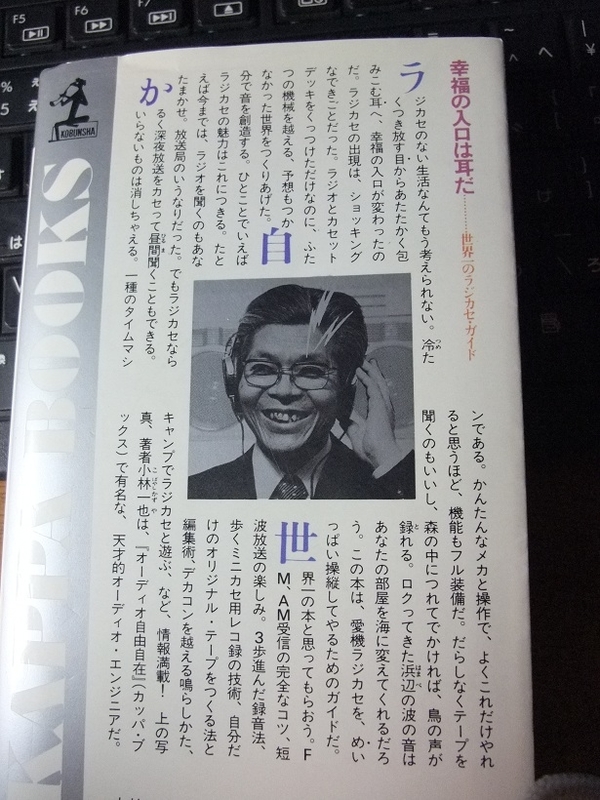 幸福の入口は耳だ…………世界一のラジカセ・ガイド
ラジカセのない生活なんてもう考えられない。冷た
くつき放す目からあたたかく包
みこむ耳へ、幸福の入口が変わったの
だ。ラジカセの出現は、ショッキング
なできごとだった。ラジオとカセット
デッキをくっつけただけなのに、ふた
つの機械を越える、予想もつか
なかった世界をつくりあげた。自
分で音を創造する。ひとことでいえば
ラジカセの魅力はこれにつきる。たと
えば今までは、ラジオを聞くのもあな
たまかせ。放送局のいうなりだった。でもラジカセなら
かるく深夜放送をカセって昼間聞くこともできる。
いらないものは消しちゃえる。一種のタイムマシ
ンである。かんたんなメカと操作で、よくこれだけやれ
ると思うほど、機能もフル装備だ。だらしなくテープを
聞くのもいいし、森の中につれてでかければ、鳥の声が
録れる。ロクってきた浜辺の波の音は
あなたの部屋を海に変えてくれるだろ
う。この本は、愛機ラジカセを、めい
っぱい操縦してやるためのガイドだ。
世界一の本と思ってもらおう。F
M、AM受信の完全なコツ、短
波放送の楽しみ。3歩進んだ録音法、
歩くミニカセ用レコ録の技術、自分だ
けのオリジナル・テープをつくる法と
編集術、デカコンを越える鳴らしかた、
キャンプでラジカセと遊ぶ、など、情報満載! 上の写
真、著者小林一也は、『オーディオ自由自在』(カッパ・ブ
ックス)で有名な、天才的オーディオ・エンジニアだ。
KOBUNSHA
KAPPA BOOKS
F5
F6
F7
F8